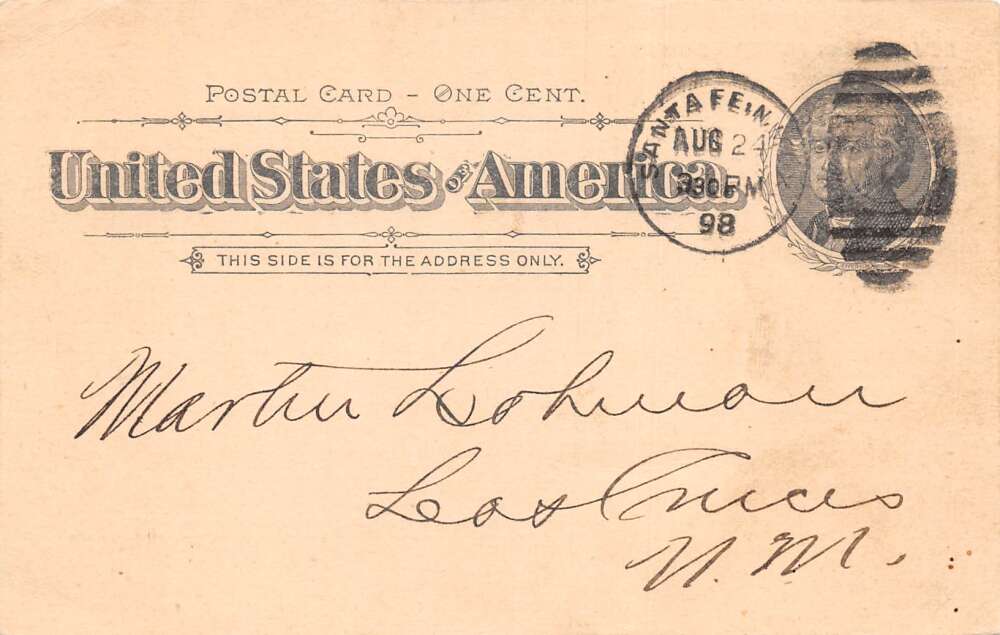 POSTAL CARD - ONE CENT.
United States OF America
THIS SIDE IS FOR THE ADDRESS ONLY.
SANTA FE, N.
AUG 24
330 PM
98
Martin Lohman
Las Cruces
N. M.